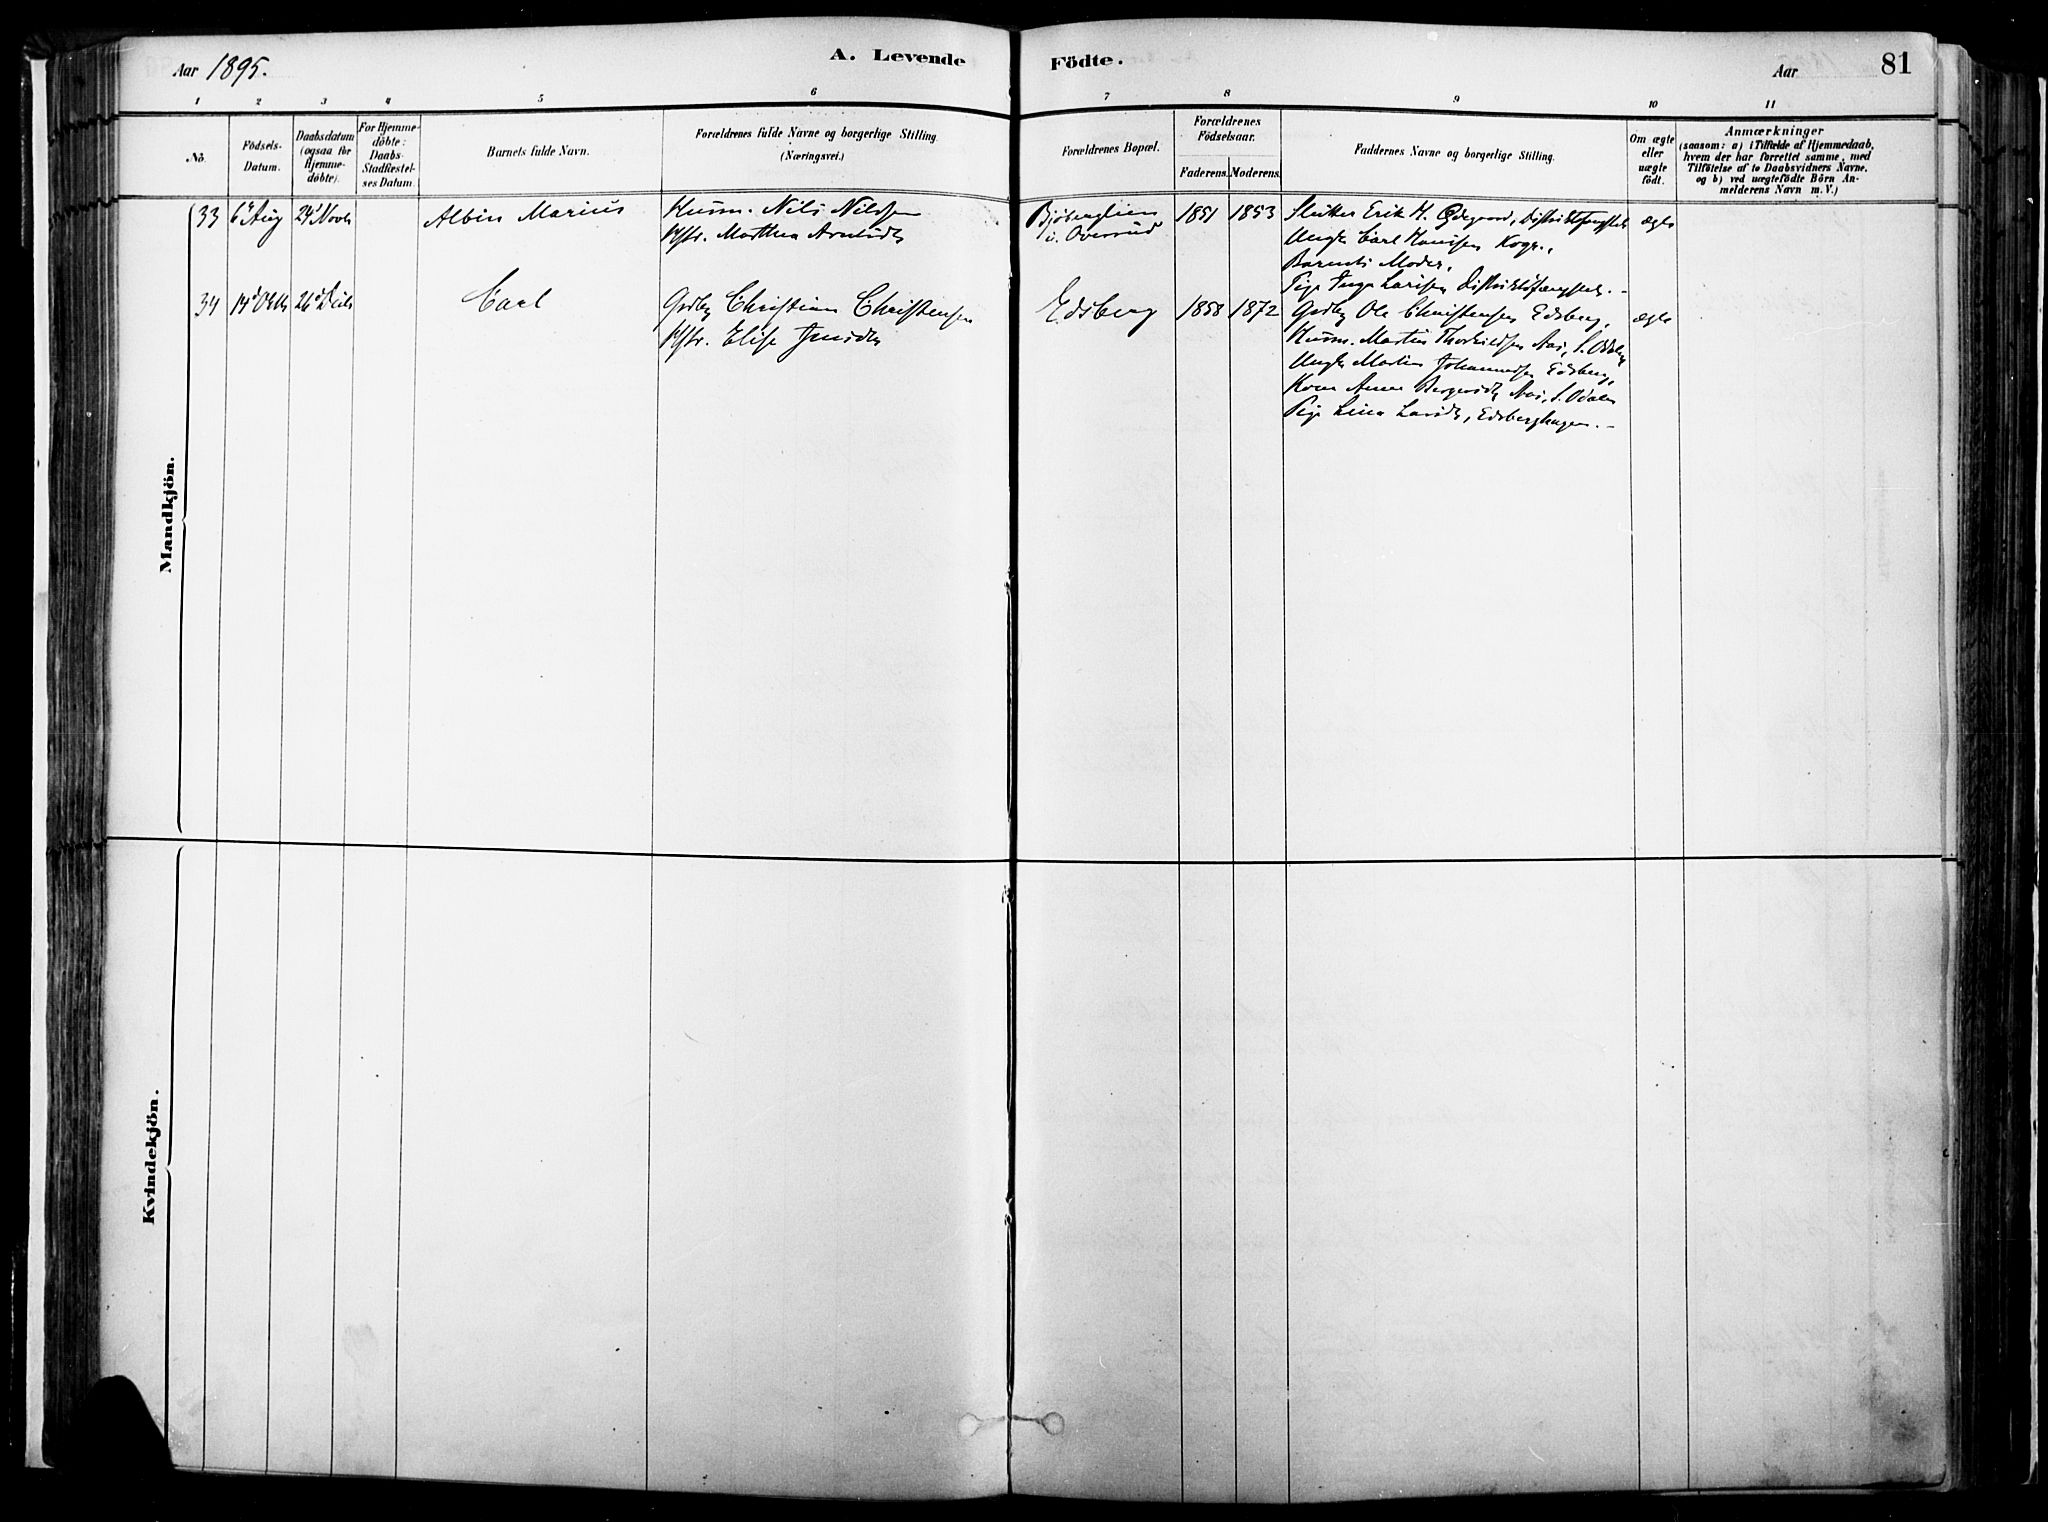 Aar 1895.
A. Levende
Födte.
Aar
81
1
2
3
4
5
6
7
8
9
10
11
No.
Födsels-
Datum.
Daabsdatum
(ogsaa for
Hjemme-
döbte).
For Hjemme-
döbte:
Daabs-
Stadfæstel-
ses Datum.
Barnets fulde Navn.
Forældrenes fulde Navne og borgerlige Stilling
(Næringsvei.)
Forældrenes Bopæl.
Forældrenes
Födselsaar.
Faderens.
Moderens.
Faddernes Navne og borgerlige Stilling.
Om ægte
eller
uægte
födt.
Anmærkninger
(saasom: a) i Tilfælde af Hjemmedaab,
hvem der har forrettet samme, med
Tilföielse af to Daabsvidners Navne,
og b) ved uægtefödte Börn An-
melderens Navn m. V.)
Mandkjön.
33 6 Aug 24 Novb Albin Marius Husm. Nils Nilssen 1851 1853 Erik H. Ødegaard, ægte
Hstr. Marthea
i. Overrud
Ungk Carl Hansen
Barnets Moder,
Pige Inga Larsen
34 14 Oktb 26 Decb Carl Gaardbr Christian Christensen Edsberg 1858 1872 Ole Christensen Edsberg, ægte
Hstr. Elise
Husm. Martin Thorkildsen Aas, S. Odalen
Ungk Martin Johannessen Edsberg,
Kone Anne Aas, S. Odalen
Pige Lina Larsd., Edsberghagen.
Kvindekjön.